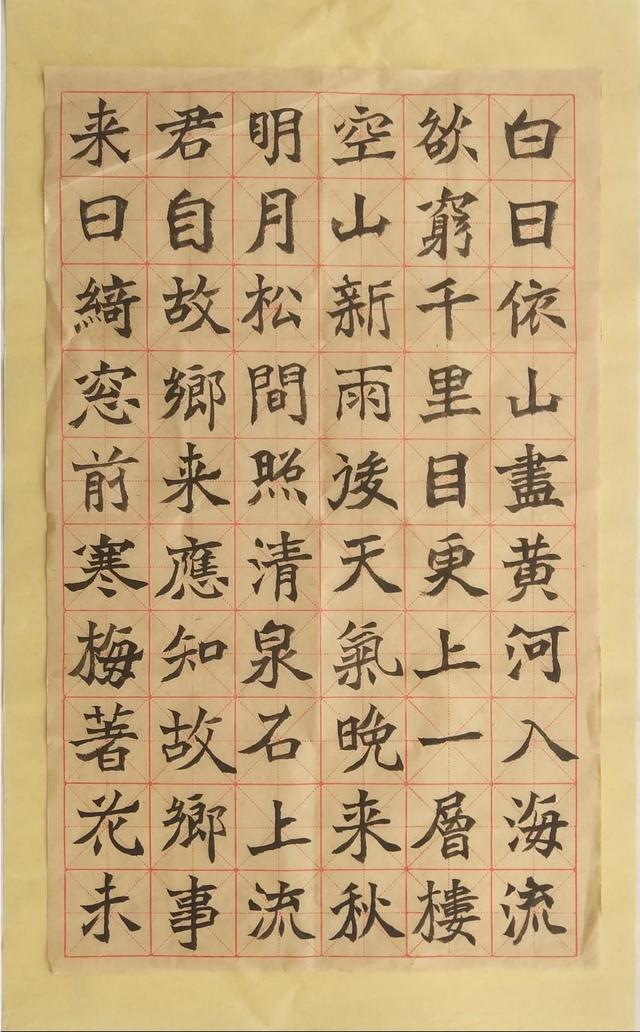 白日依山盡黄河入海流
欲窮千里目更上一層樓
空山新雨後天氣晚来秋
明月松間照清泉石上流
君自故鄉来應知故鄉事
来日綺窓前寒梅著花未